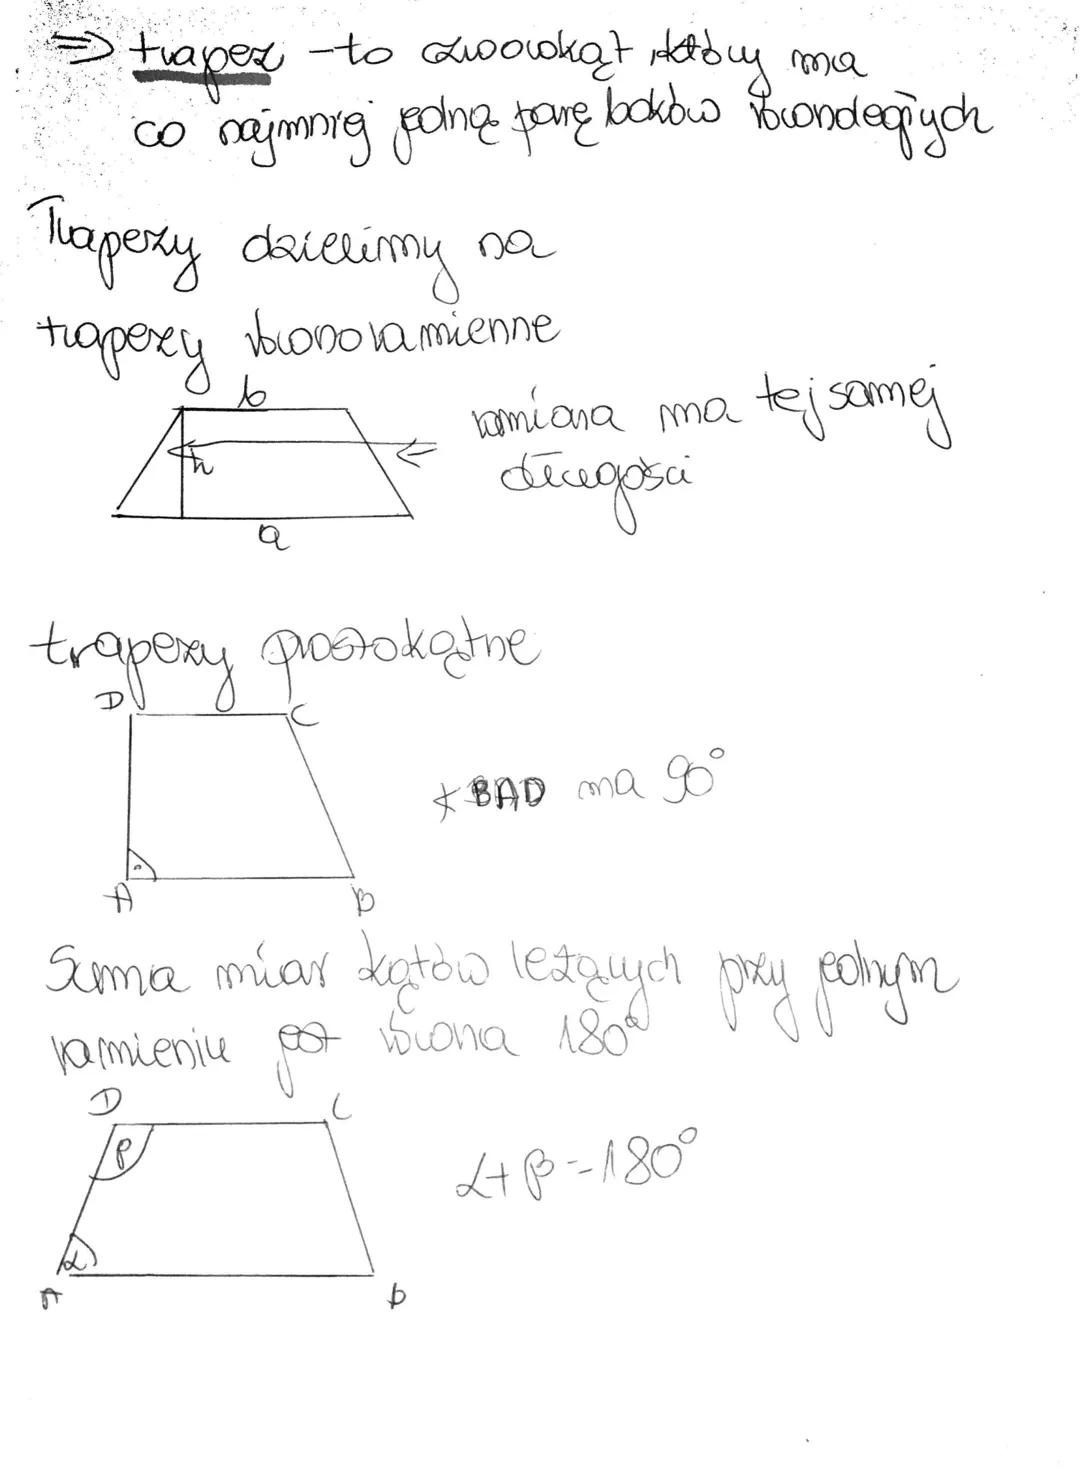 ⇒ trapez - to czworokąt, który ma
co najmniej jedną parę boków równoległych
Trapezy dzielimy na
trapezy równoramienne
b
ramiona ma tej samej
długości
h
a
trapezy prostokątne
D
C
∢ BAD ma 90°
A
B
Suma miar kątów leżących przy jednym
ramieniu jest równa 180°
D
C
β
α + β = 180°
α
A
b